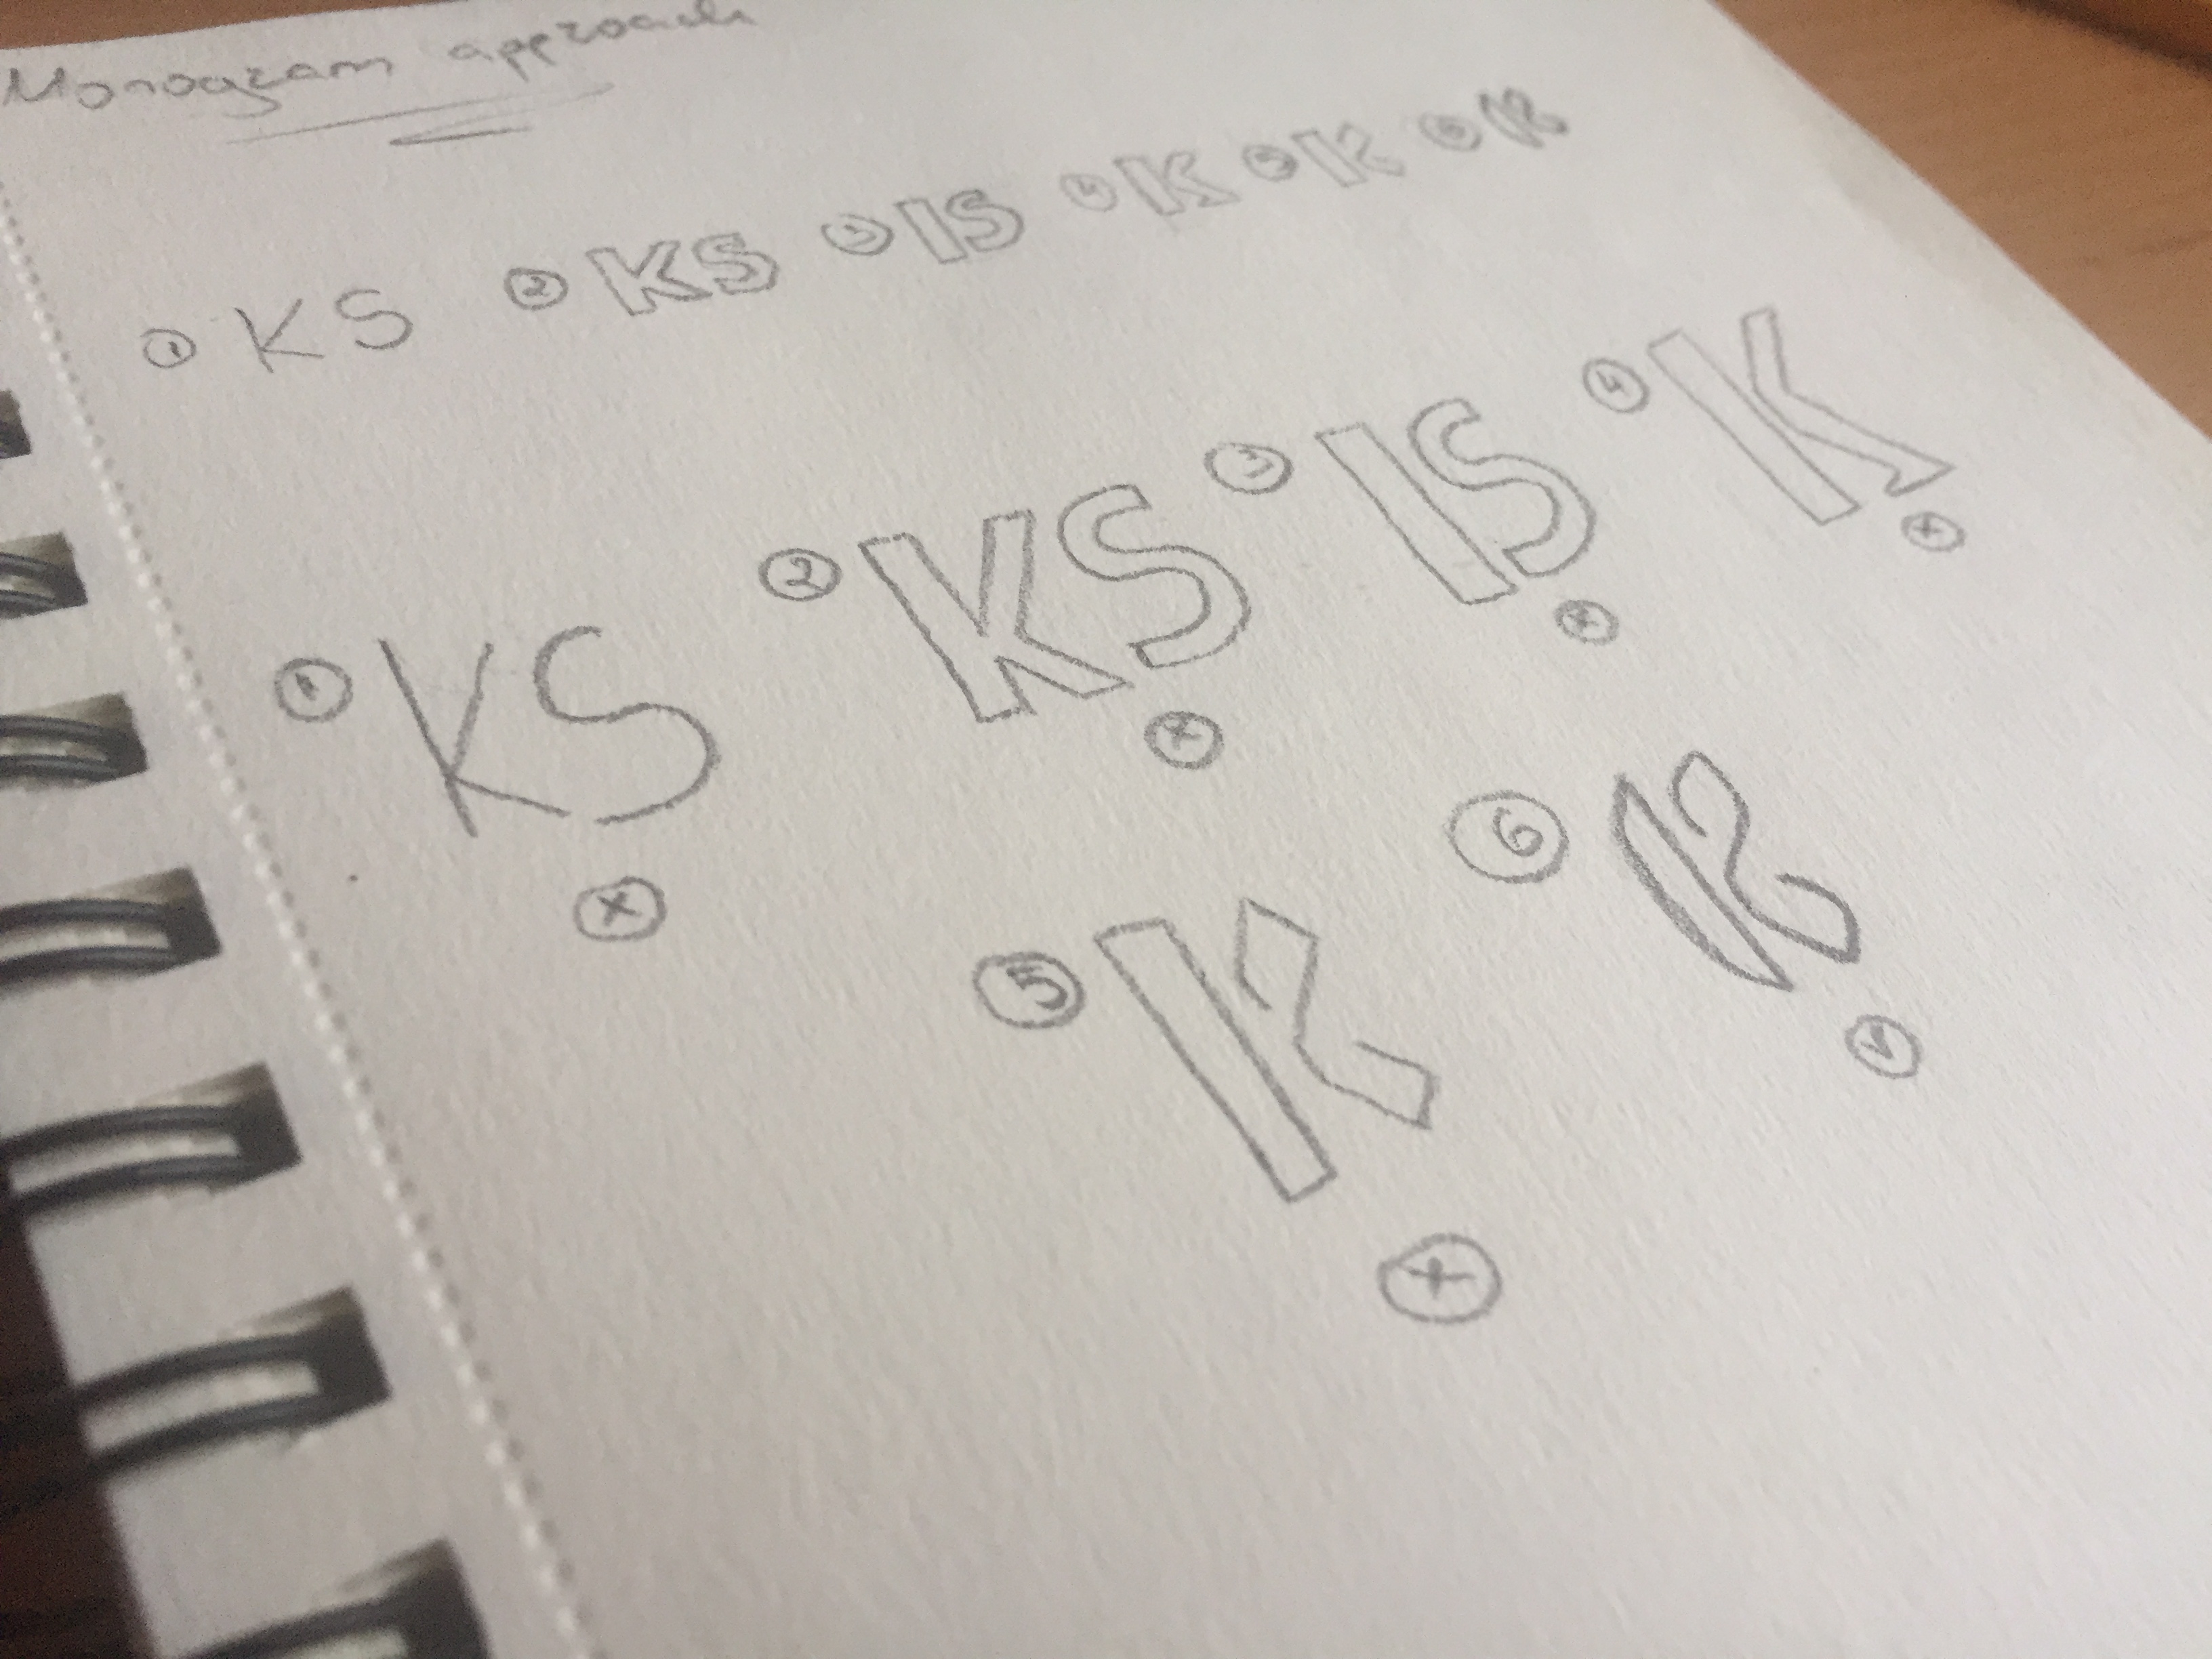 Monogram approach
① KS ② KS ③ IS ④ K ⑤ K ⑥ K
① KS ② KS ③ IS ④ K
⑤ K ⑥ K